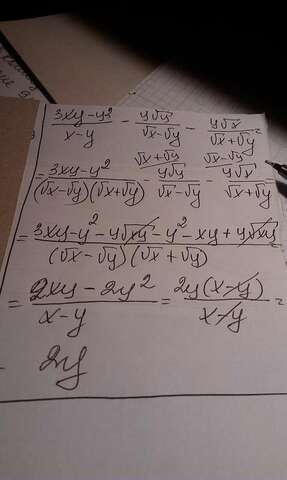 (3xy-y²)/(x-y) - (y√y)/(√x-√y) - (y√x)/(√x+√y) =
= (3xy-y²)/((√x-√y)(√x+√y)) - √x+√y (y√y)/(√x-√y) - √x-√y (y√x)/(√x+√y)
= (3xy-y²-y√xy-y²-xy+y√xy)/((√x-√y)(√x+√y)) =
= (2xy-2y²)/(x-y) = (2y(x-y))/(x-y) =
2y